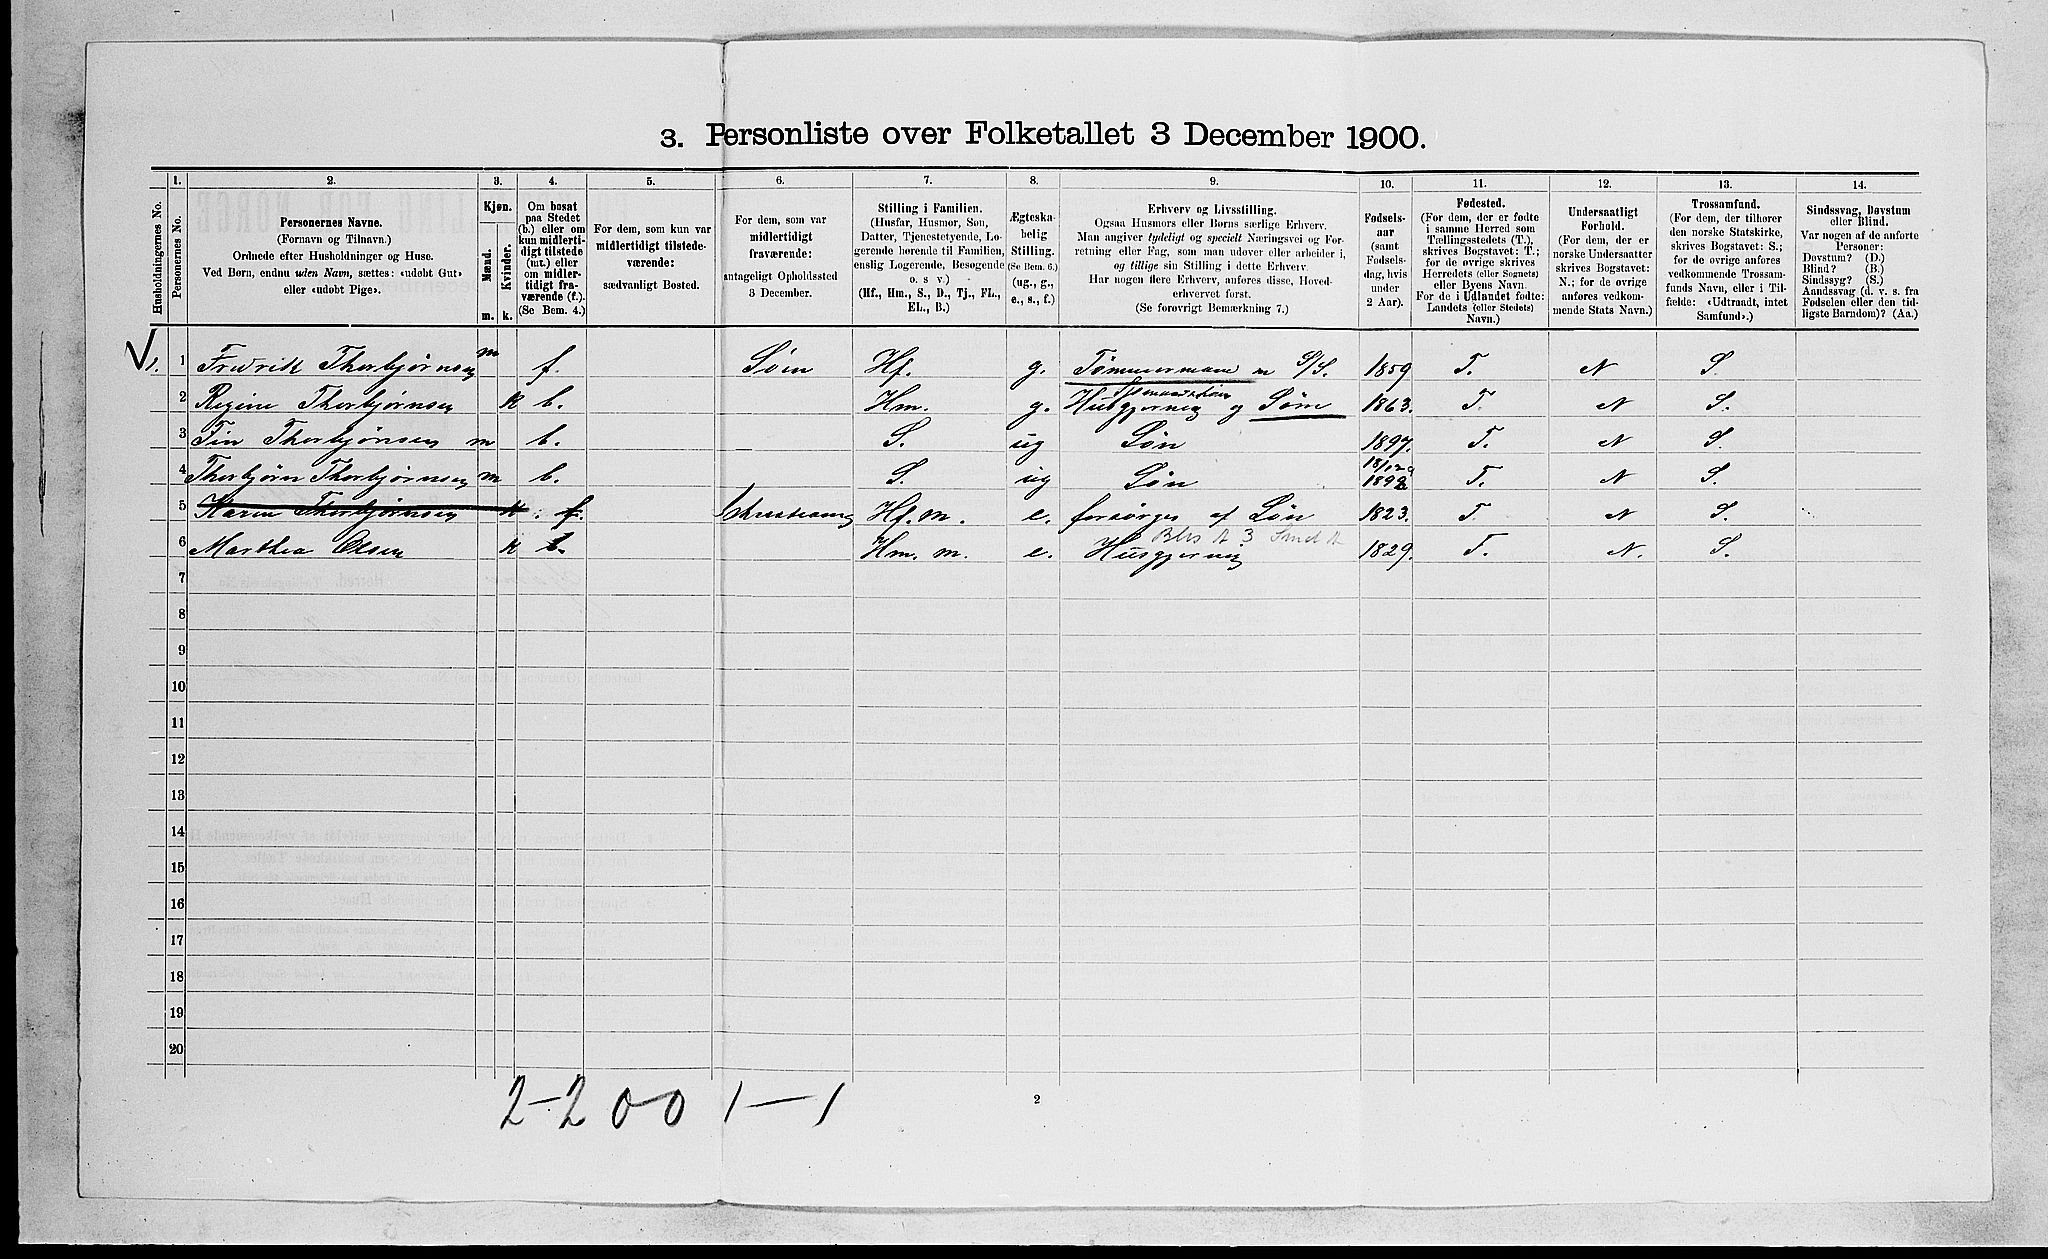 3. Personliste over Folketallet 3 December 1900.
Husholdningernes No.
1.
Personernes No.
2.
Personernes Navne.
(Fornavn og Tilnavn.)
Ordnede efter Husholdninger og Huse.
Ved Børn, endnu uden Navn, sættes: «udøbt Gut»
eller «udøbt Pige».
3.
Kjøn.
Mænd.
Kvinder.
m. k.
4.
Om bosat
paa Stedet
(b.) eller om
kun midlerti-
digt tilstede
(mt.) eller
om midler-
tidigt fra-
værende (f.).
(Se Bem. 4.)
5.
For dem, som kun var
midlertidigt tilstede-
værende:
sædvanligt Bosted.
6.
For dem, som var
midlertidigt
fraværende:
antageligt Opholdssted
3 December.
7.
Stilling i Familien.
(Husfar, Husmor, Søn,
Datter, Tjenestetyende, Lo-
gerende hørende til Familien,
enslig Logerende, Besøgende
o. s v.)
(Hf., Hm., S., D., Tj., FL.,
EL., B.)
8.
Ægteska-
belig
Stilling.
(Se Bem. 6.)
(ug., g.,
e., s., f.)
9.
Erhverv og Livsstilling.
Ogsaa Husmors eller Børns særlige Erhverv.
Man angiver tydeligt og specielt Næringsvei og For-
retning eller Fag, som man udøver eller arbeider i,
og tillige sin Stilling i dette Erhverv.
Har nogen flere Erhverv, anføres disse, Hoved-
erhvervet først.
(Se forøvrigt Bemærkning 7.)
10.
Fødsels-
aar
(samt
Fødsels-
dag, hvis
under
2 Aar).
11.
Fødested.
(For dem, der er fødte
i samme Herred som
Tællingsstedets (T.),
skrives Bogstavet: T.;
for de øvrige skrives
Herredets (eller Sognets)
eller Byens Navn.
For de i Udlandet fødte:
Landets (eller Stedets)
Navn.)
12.
Undersaatligt
Forhold.
(For dem, der er
norske Undersaatter
skrives Bogstavet:
N.; for de øvrige
anføres vedkom-
mende Stats Navn.)
13.
Trossamfund.
(For dem, der tilhører
den norske Statskirke,
skrives Bogstavet: S.;
for de øvrige anføres
vedkommende Trossam-
funds Navn, eller i Til-
fælde: «Udtraadt, intet
Samfund».)
14.
Sindssvag, Døvstum
eller Blind.
Var nogen af de anførte
Personer:
Døvstum? (D.)
Blind? (B.)
Sindssyg? (S.)
Aandssvag (d. v. s. fra
Fødselen eller den tid-
ligste Barndom)? (Aa.)
1. 1 Fredrik Thorbjørnsen m f. Søen Hf. g. Tømmermand S/S. 1859 T. N S.
2 Regine Thorbjørnsen k b. Hm. g. Husgjerning og Søm 1863. T. N S.
3 Fin Thorbjørnsen m b. S. ug Søn 1897. T. N S.
4 Thorbjørn Thorbjørnsen m b. S. ug Søn 18/12 1899 T. N S.
5 Karen Thorbjørnsen k f. Christiania Hf. m. e. forsørges af Søn 1823. T. N S.
6 Marthea Olsen k b. Hm. m. e. Husgjerning 1829. T. N. S.
7
8
9
10
11
12
13
14
15
16
17
18
19
20
2-2 0-0 1-1
2